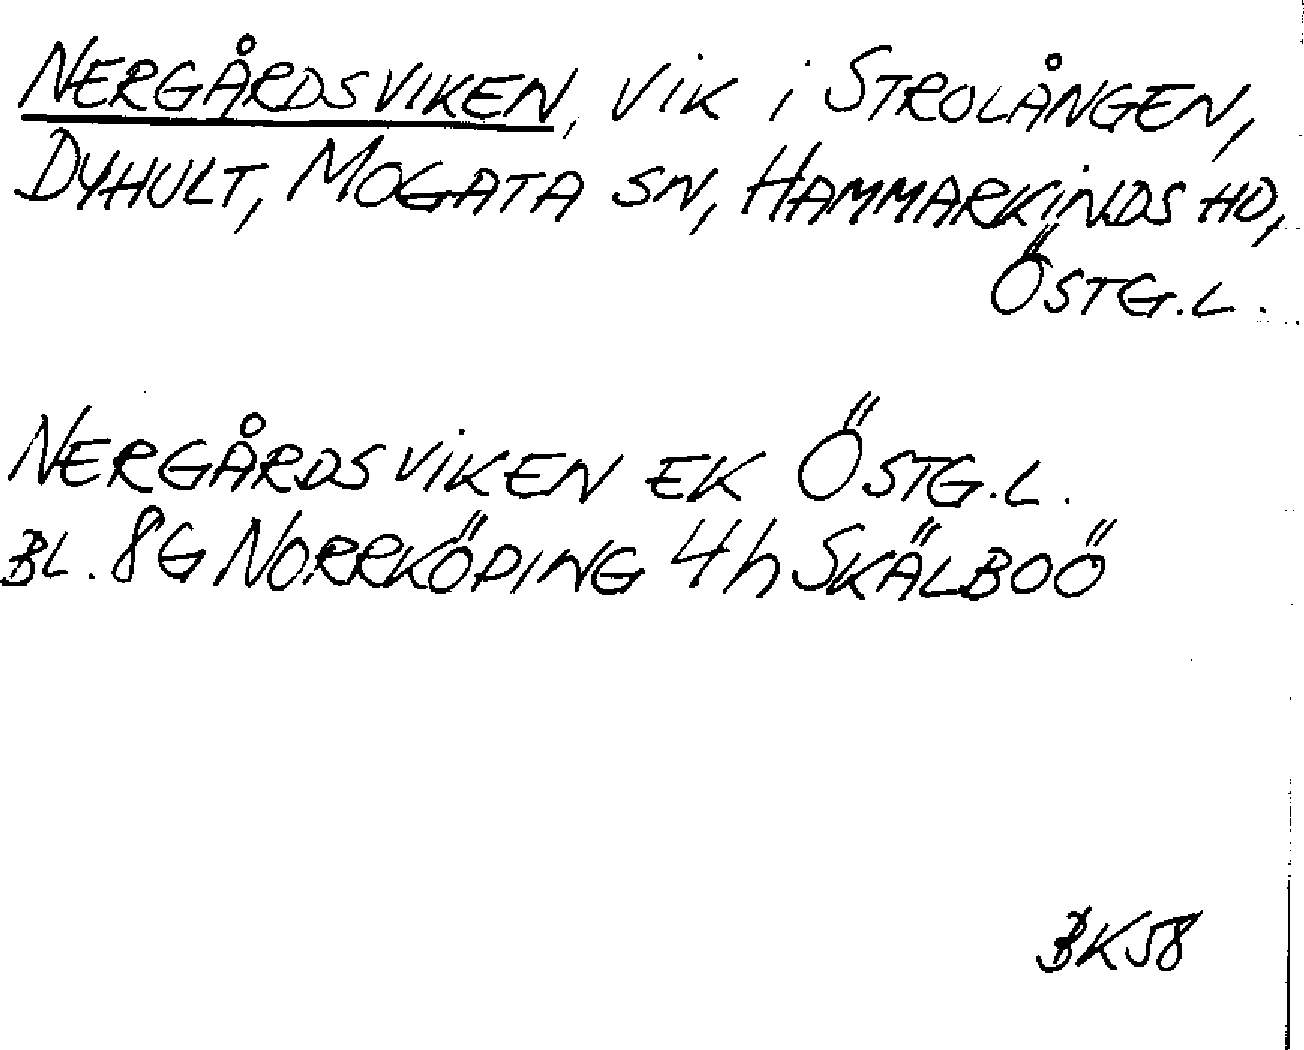 NERGÅRDSVIKEN, VIK i STROLÅNGEN,
DYHULT, MOGATA SN, HAMMARKINDS HD,
ÖSTG.L.
NERGÅRDSVIKEN EK ÖSTG.L.
BL. 8G NORRKÖPING 4h SKÄLBOÖ
BK58